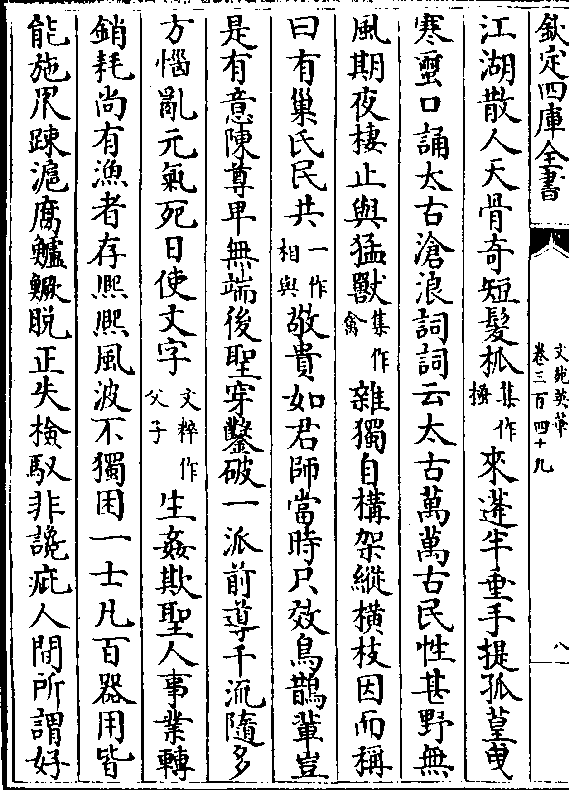 欽定四庫全書
文苑英華
卷三百四十九
八
江湖散人天骨奇短髮抓集作搔來蓬半垂手提孤篁曳
寒蠒口誦太古滄浪詞詞云太古萬萬古民性甚野無
風期夜棲止與猛獸集作禽雜獨自構架縱橫枝因而稱
曰有巢氏民共一作相與敬貴如君師當時只效鳥鵲輩豈
是有意陳尊卑無端後聖穿鑿破一派前導千流隨多
方惱亂元氣死日使文字文粹作父子生姦欺聖人事業轉
銷耗尚有漁者存熈熈風波不獨困一士凡百器用皆
能施罛踈滬腐鱸鱖脫正失檢馭非讒疵人間所謂好